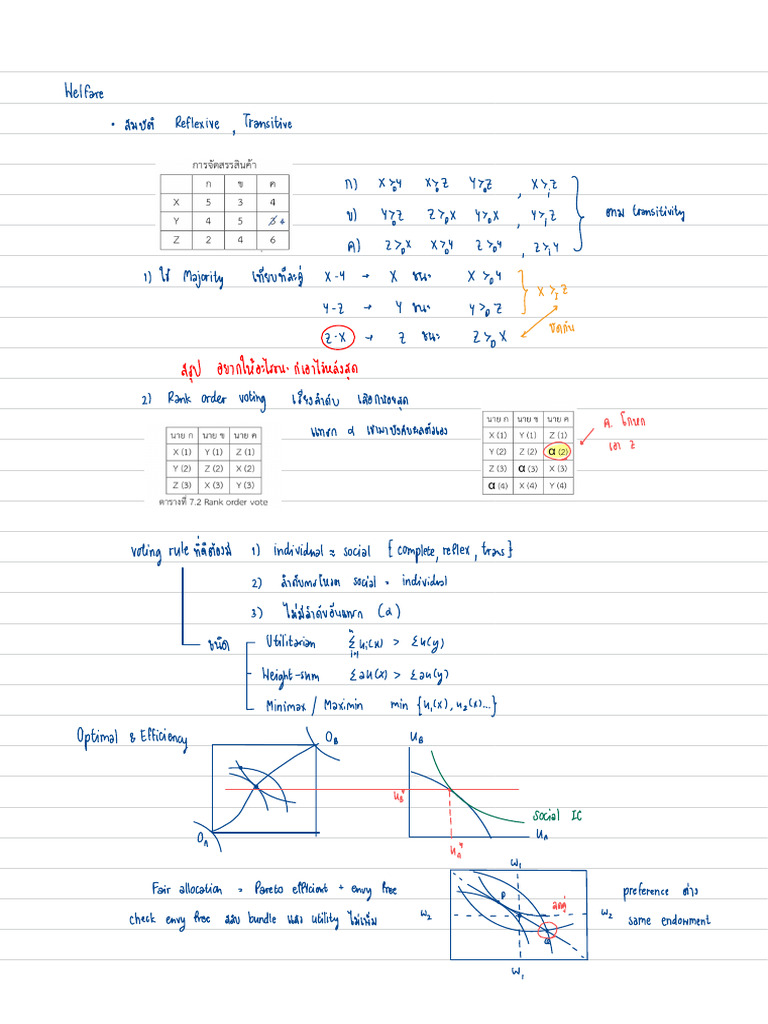 Welfare
• สมบัติ Reflexive, Transitive
การจัดสรรสินค้า
ก ข ค
X 5 3 4
Y 4 5 3 4
Z 2 4 6
ก) X >ᴅ Y X >ᴅ Z Y >ᴅ Z , X >ᵢ Z
ข) Y >ᴅ Z Z >ᴅ X Y >ᴅ X , Y >ᵢ Z
ค) Z >ᴅ X X >ᴅ Y Z >ᴅ Y , Z >ᵢ Y
ตาม transitivity
1) ใช้ Majority เทียบทีละคู่ X-Y → X ชนะ X >ᴅ Y
Y-Z → Y ชนะ Y >ᴅ Z
X >ᵢ Z
Z-X → Z ชนะ Z >ᴅ X
ขัดกัน
สรุป อยากให้อะไรชนะ ก็เอาไว้หลังสุด
2) Rank order voting เรียงลำดับ เลือกน้อยสุด
แทรก α เข้ามาบังคับผลตัวเอง
นาย ก นาย ข นาย ค
X (1) Y (1) Z (1)
Y (2) Z (2) X (2)
Z (3) X (3) Y (3)
ตารางที่ 7.2 Rank order vote
นาย ก นาย ข นาย ค
X (1) Y (1) Z (1)
Y (2) Z (2) α (2)
Z (3) α (3) X (3)
α (4) X (4) Y (4)
ค. โกหก
เอา Z
voting rule ที่ดีต้องมี 1) individual = social {complete, reflex, trans}
2) ลำดับการโหวต social = individual
3) ไม่มีลำดับอื่นแทรก (α)
ชนิด
Utilitarian Σⁿᵢ₌₁ uᵢ(x) > Σu(y)
Weight-sum Σau(x) > Σau(y)
Minimax / Maximin min {u₁(x), u₂(x)...}
Optimal & Efficiency
O_B
O_A
U_B
U_B*
Social IC
U_A
U_A*
Fair allocation = Pareto efficient + envy free
check envy free สลับ bundle แล้ว utility ไม่เพิ่ม
W₁
W₂
P
W₂
W₁
preference ต่าง
same endowment